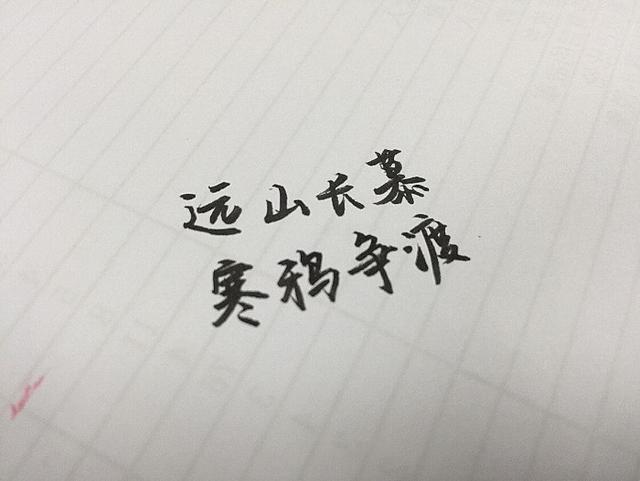 远山长慕
寒鸦争渡